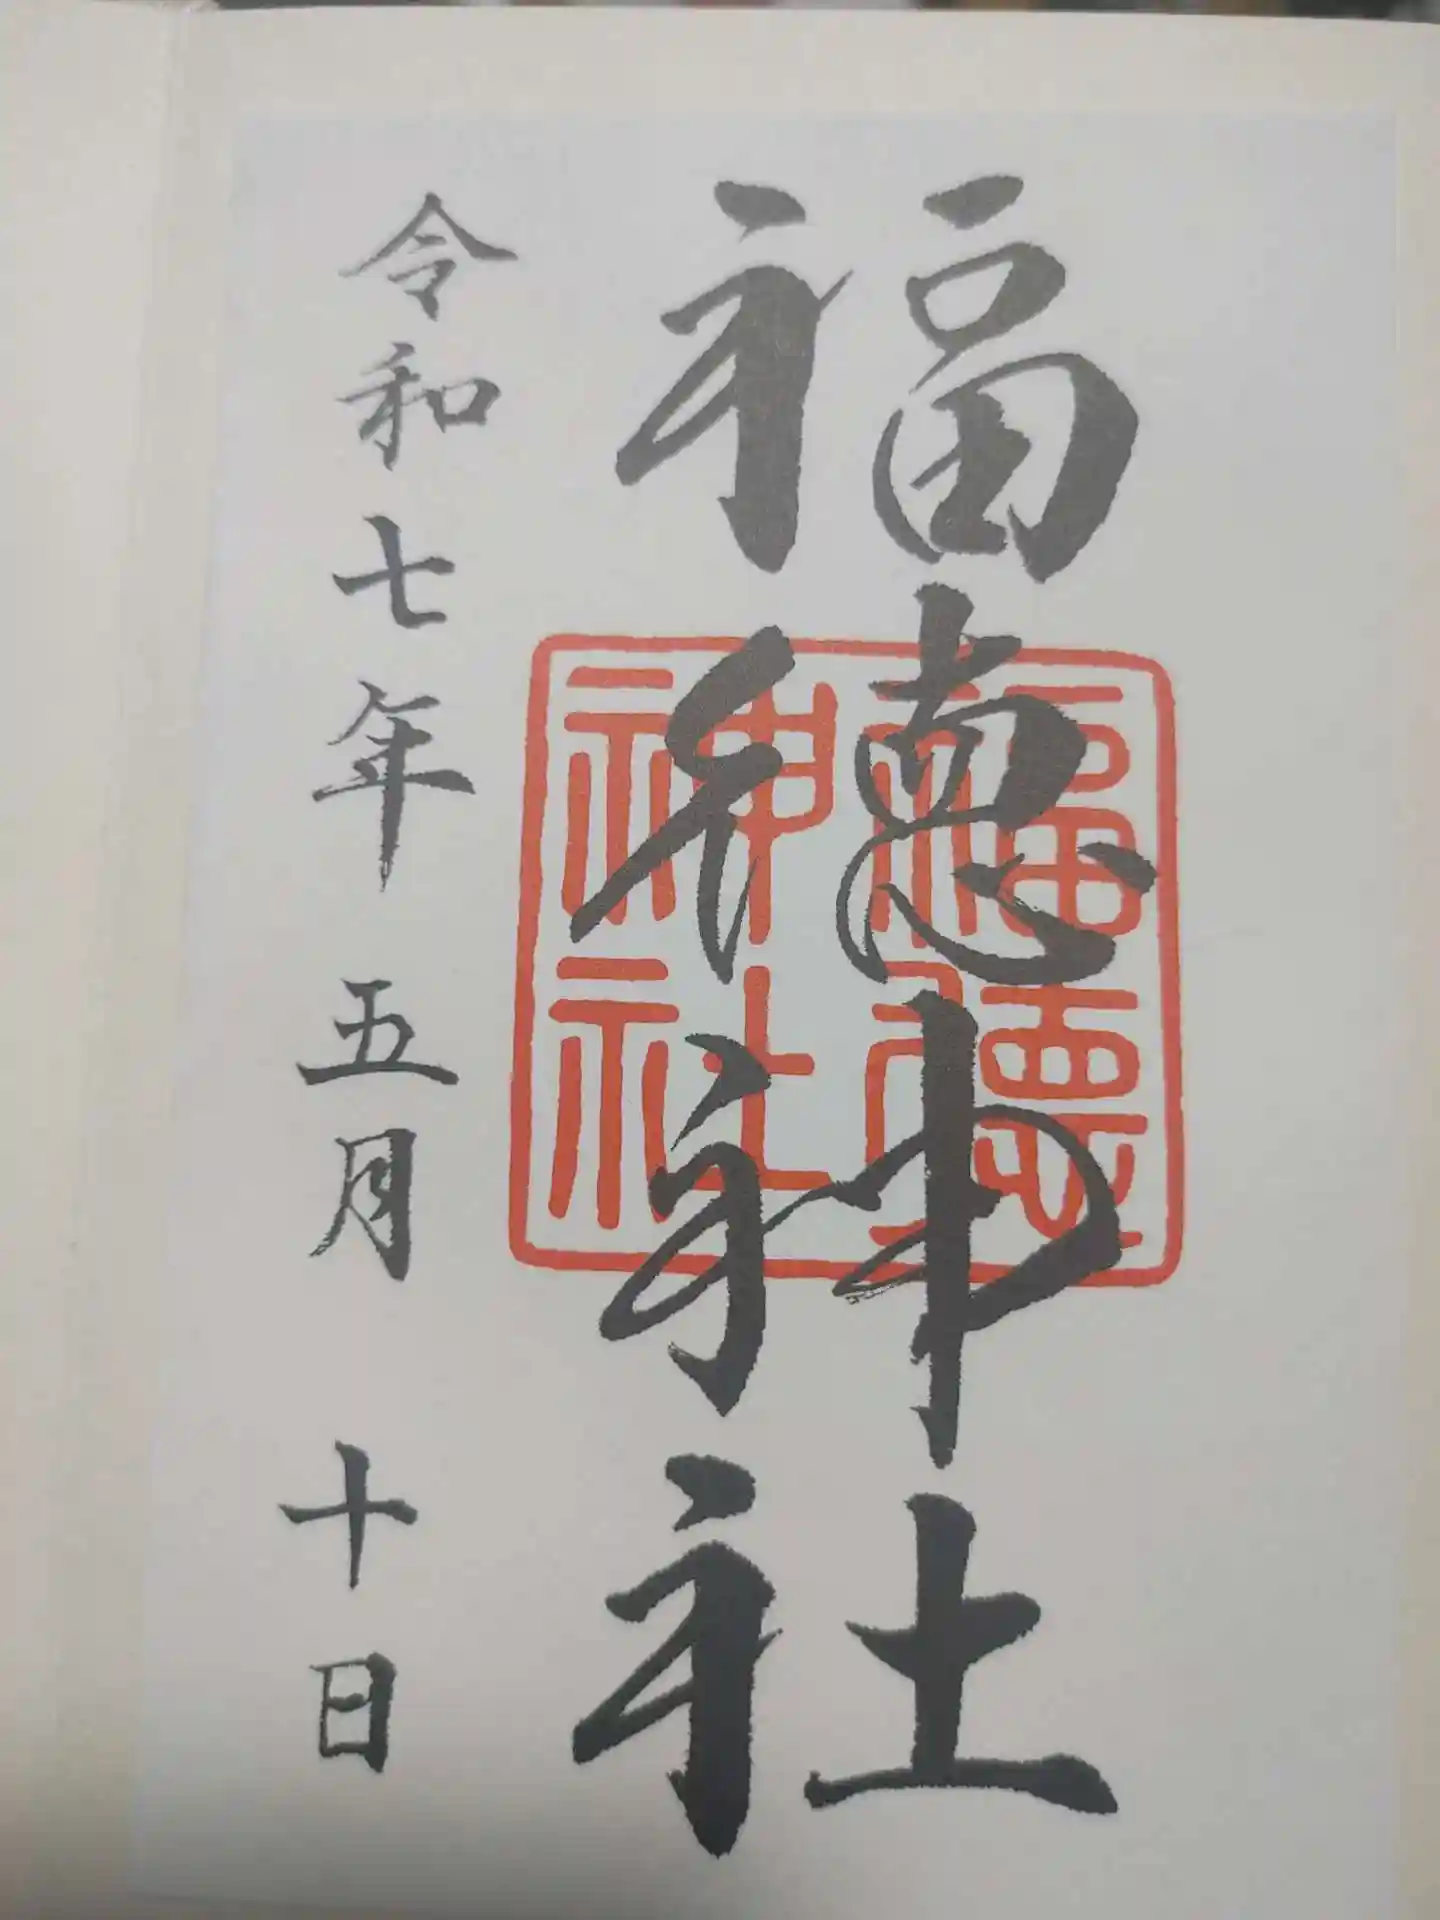 福徳神社
福徳
神社
令和七年五月十日